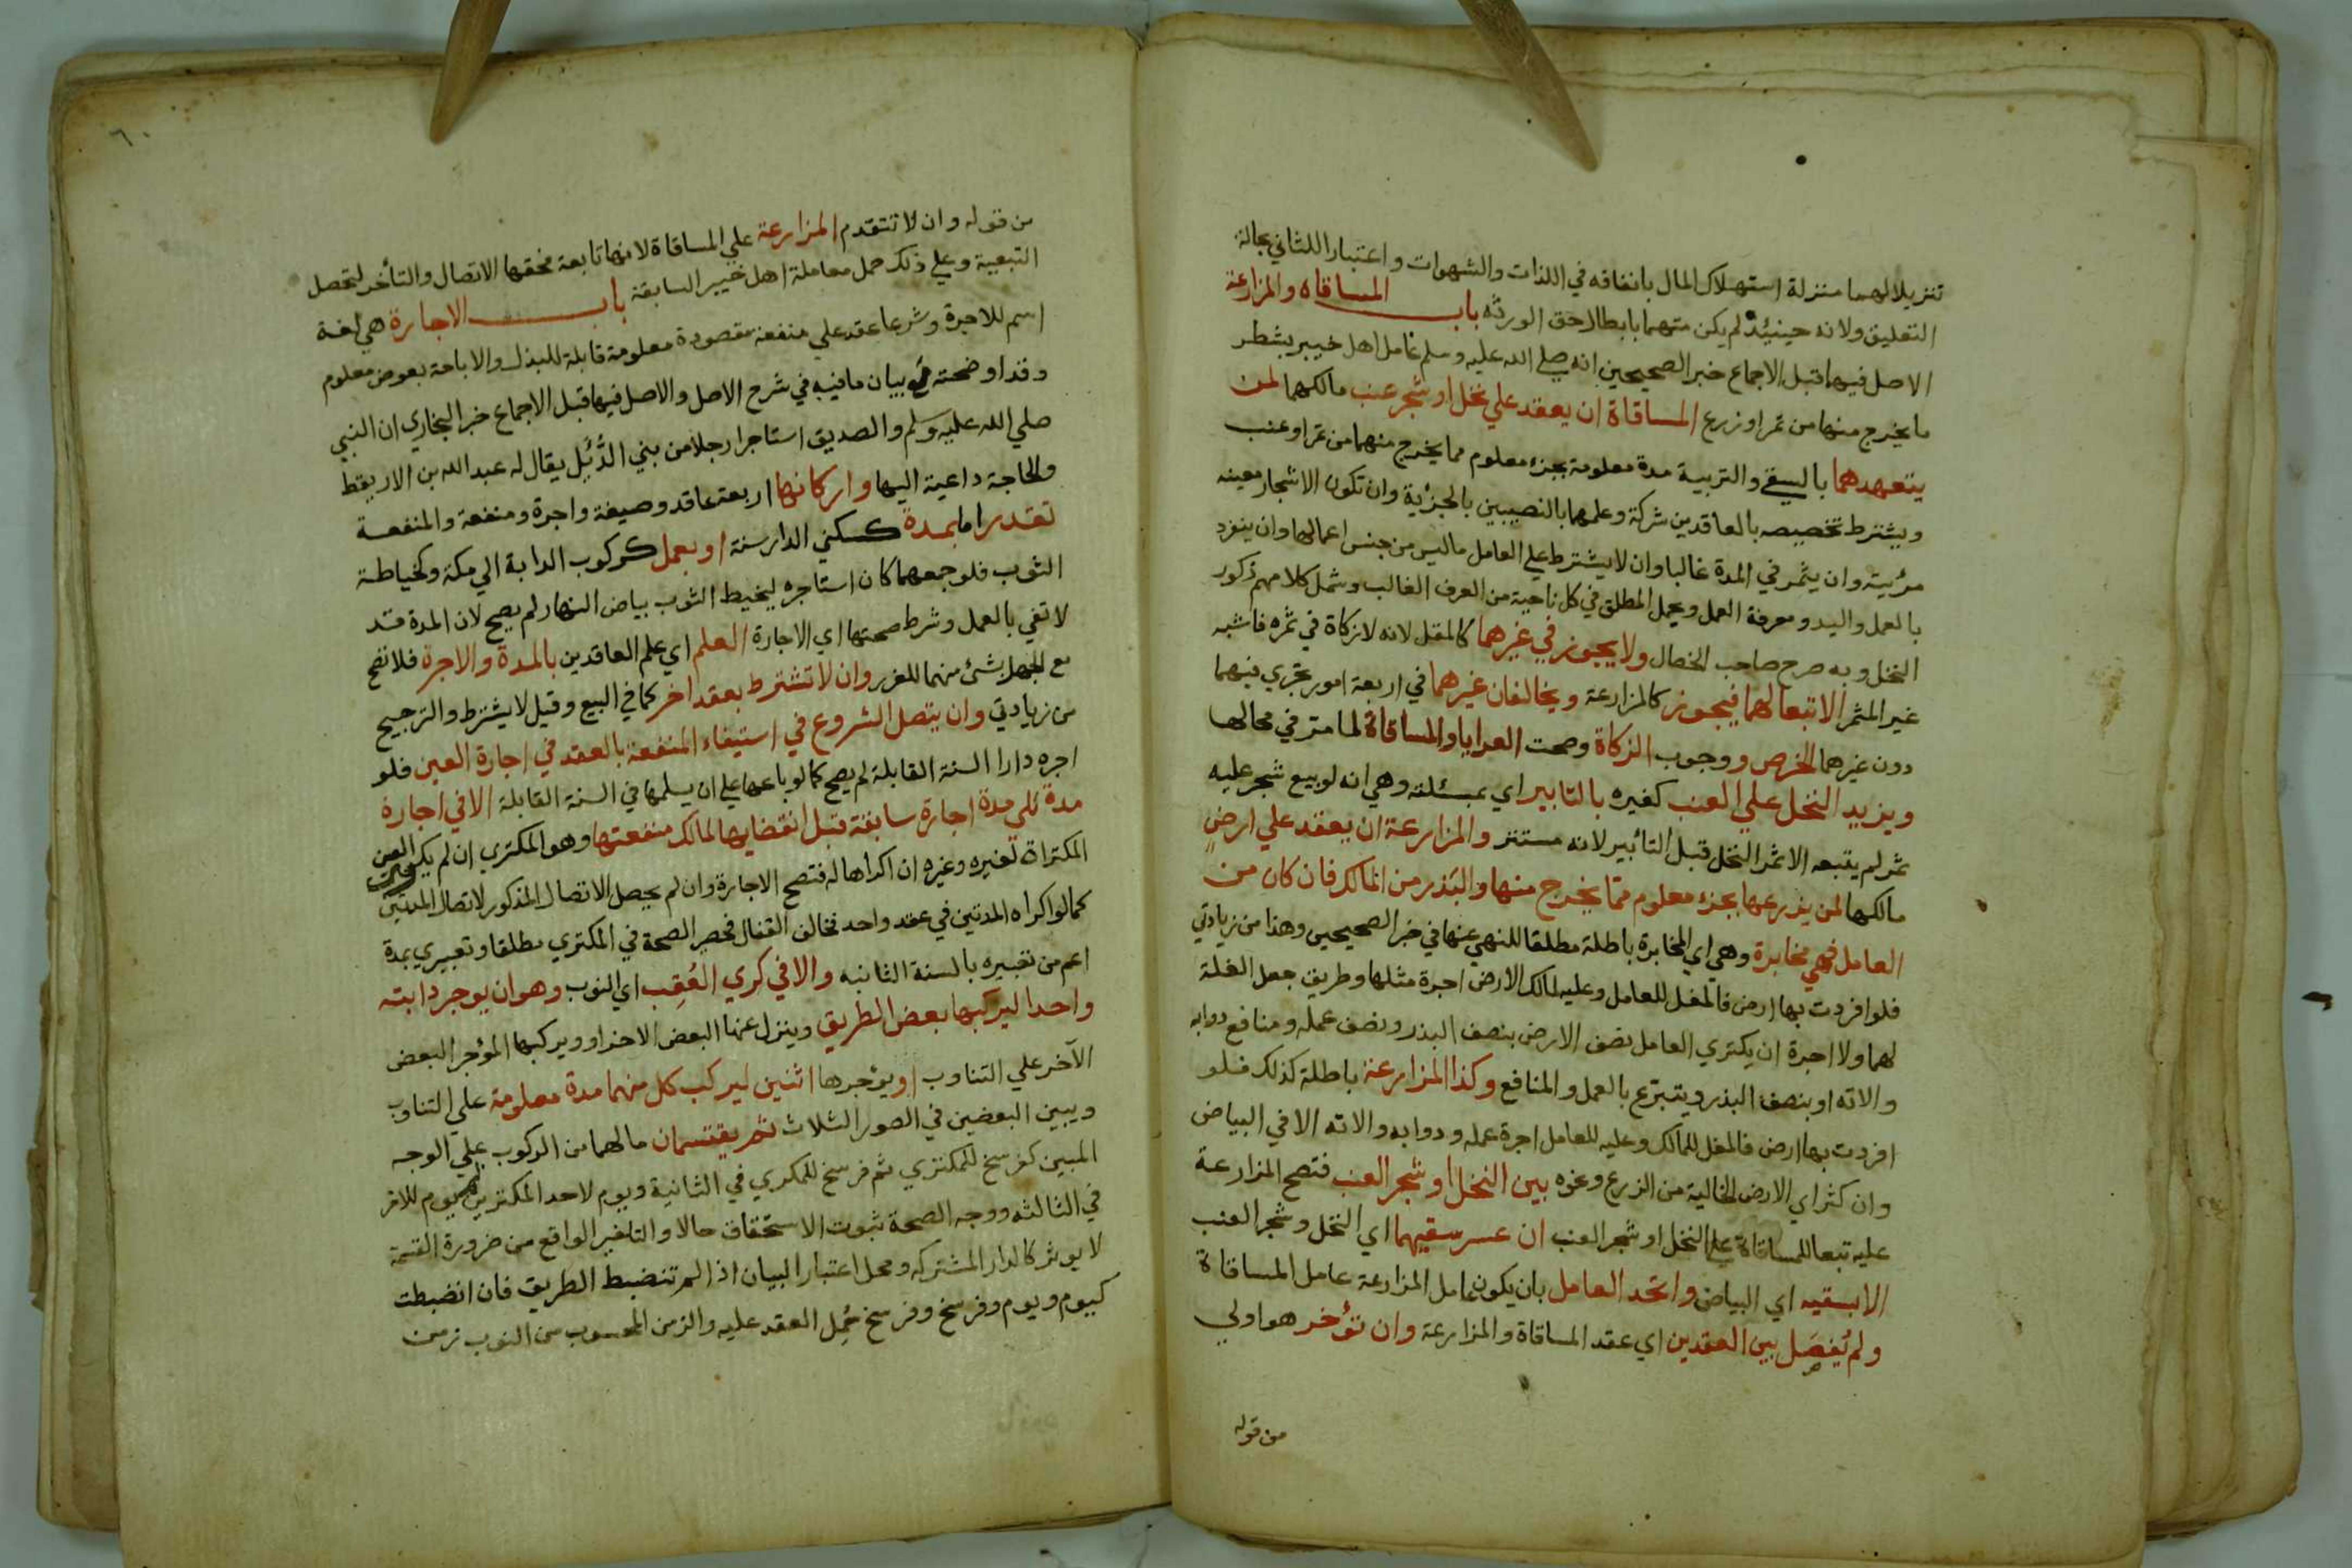 تنزيلا لهما منزلة استهلاك المال بانفاقه في اللذات والشهوات واعتبارا للثاني بحالة
التعليق ولانه حينئذ لم يكن متهما بابطال حق الورثه باب المساقاه والمزارعة
الاصل فيها قبل الاجماع خبر الصحيحين انه صلي الله عليه وسلم عامل اهل خيبر بشطر
ما يخرج منها من ثمر او زرع المساقاة ان يعقد علي نخل او شجر عنب مالكهما لمن
يتعهدهما بالسقي والتربية مدة معلومة بجزء معلوم مما يخرج منهما من ثمر او عنب
ويشترط تخصيصه بالعاقدين شركة وعلمهما بالنصيبين بالجزئية وان تكون الاشجار معينه
مرئية وان يثمر في المدة غالبا وان لا يشترط علي العامل ما ليس من جنس اعمالها وان ينفرد
بالعمل واليد ومعرفة العمل ويحمل المطلق في كل ناحية من العرف الغالب وشمل كلامهم ذكور
النخل وبه صرح صاحب الخصال ولا يجوز في غيرهما كالمقل لانه لا زكاة في ثمره فاشبه
غير المثمر الا تبعا لهما فيجوز كالمزارعة ويخالفان غيرهما في اربعة امور تجري فيهما
دون غيرهما الخرص ووجوب الزكاة وصحت العرايا والمساقاة لما مر في محالها
ويزيد النخل علي العنب كغيره بالتابير اي بمسئلته وهي انه لو بيع شجر عليه
ثمر لم يتبعه الا ثمر النخل قبل التأبير لانه مستتر والمزارعة ان يعقد علي ارض
مالكها لمن يزرعها بجزء معلوم مما يخرج منها والبذر من المالك فان كان من
العامل فهي مخابرة وهي اي المخابرة باطلة مطلقا للنهي عنها في خبر الصحيحين وهذا من زيادتي
فلو افردت بها ارض فالمغل للعامل وعليه لمالك الارض اجرة مثلها وطريق جعل الغلة
لهما ولا اجرة ان يكتري العامل نصف الارض بنصف البذر ونصف عمله ومنافع دوابه
والاته او بنصف البذر ويتبرع بالعمل والمنافع وكذا المزارعة باطلة كذلك فلو
افردت بها ارض فالمغل للمالك وعليه للعامل اجرة عمله ودوابه والاته الا في البياض
وان كثر اي الارض الخالية من الزرع وغيره بين النخل او شجر العنب فتصح المزارعة
عليه تبعا للمساقاة علي النخل او شجر العنب ان عسر سقيهما اي النخل وشجر العنب
الا بسقيه اي البياض واتحد العامل بان يكون عامل المزارعة عامل المساقاة
ولم يُفصَل بين العقدين اي عقد المساقاة والمزارعة وان تؤخر هو اولي
من قوله
٦٠
من قوله وان لا تتقدم المزارعة علي المساقاة لانها تابعة فحقها الاتصال والتأخر لتحصل
التبعية وعلي ذلك حمل معاملة اهل خيبر السابقة باب الاجارة هي لغة
اسم للاجرة وشرعا عقد علي منفعة مقصودة معلومة قابلة للبذل والاباحة بعوض معلوم
وقد اوضحته مع بيان ما فيه في شرح الاصل والاصل فيها قبل الاجماع خبر البخاري ان النبي
صلي الله عليه وسلم والصديق استاجرا رجلا من بني الدُّئِل يقال له عبد الله بن الاريقط
والحاجة داعية اليها واركانها اربعة عاقد وصيغة واجرة ومنفعة والمنفعة
تقدر اما بمدة كسكني الدار سنة او بعمل كركوب الدابة الي مكة وكخياطة
الثوب فلو جمعهما كان استاجره ليخيط الثوب بياض النهار لم يصح لان المدة قد
لا تفي بالعمل وشرط صحتها اي الاجارة العلم اي علم العاقدين بالمدة والاجرة فلا تصح
مع الجهل بشئ منهما للغرر وان لا تشترط بعقد اخر كما في البيع وقيل لا يشترط والترجيح
من زيادتي وان يتصل الشروع في استيفاء المنفعة بالعقد في اجارة العين فلو
اجره دارا السنة القابلة لم يصح كما لو باعها علي ان يسلمها في السنة القابلة الا في اجارة
مدة تلي مدة اجارة سابقة قبل انقضايها لمالك منفعتها وهو المكتري ان لم يكر العين
المكتراة لغيره وغيره ان اكراها له فتصح الاجارة وان لم يحصل الاتصال المذكور لاتصال المدتين
كما لو اكراه المدتين في عقد واحد تخالف القفال فحصر الصحة في المكتري مطلقا وتعبيري بمدة
اعم من تعبيره بالسنة الثانيه والا في كري العُقِب اي النوب وهو ان يوجر دابته
واحدا ليركبها بعض الطريق وينزل عنها البعض الاخر او ويركبها المؤجر البعض
الآخر علي التناوب او يؤجرها اثنين ليركب كل منهما مدة معلومة علي التناوب
ويبين البعضين في الصور الثلاث ثم يقتسمان ما لهما من الركوب علي الوجه
المبين كفرسخ للمكتري ثم فرسخ للمكري في الثانية ويوم لاحد المكتريين ويوم للاخر
في الثالثه ووجه الصحة ثبوت الاستحقاق حالا والتاخير الواقع من ضرورة القسمة
لا يوثر كالدار المشتركه ومحل اعتبار البيان اذا لم تنضبط الطريق فان انضبطت
كيوم ويوم وفرسخ وفرسخ حُمِل العقد عليه والزمن المحسوب من النوب زمن